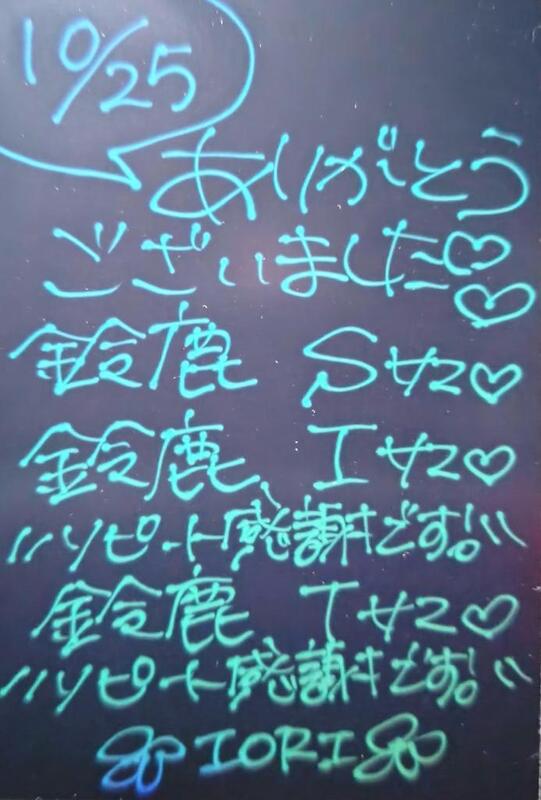 10/25
ありがとう
ございました♡♡
鈴鹿 Sサン♡
鈴鹿 Iサン♡
〃リピート感謝です!〃
鈴鹿 Tサン♡
〃リピート感謝です!〃
IORI